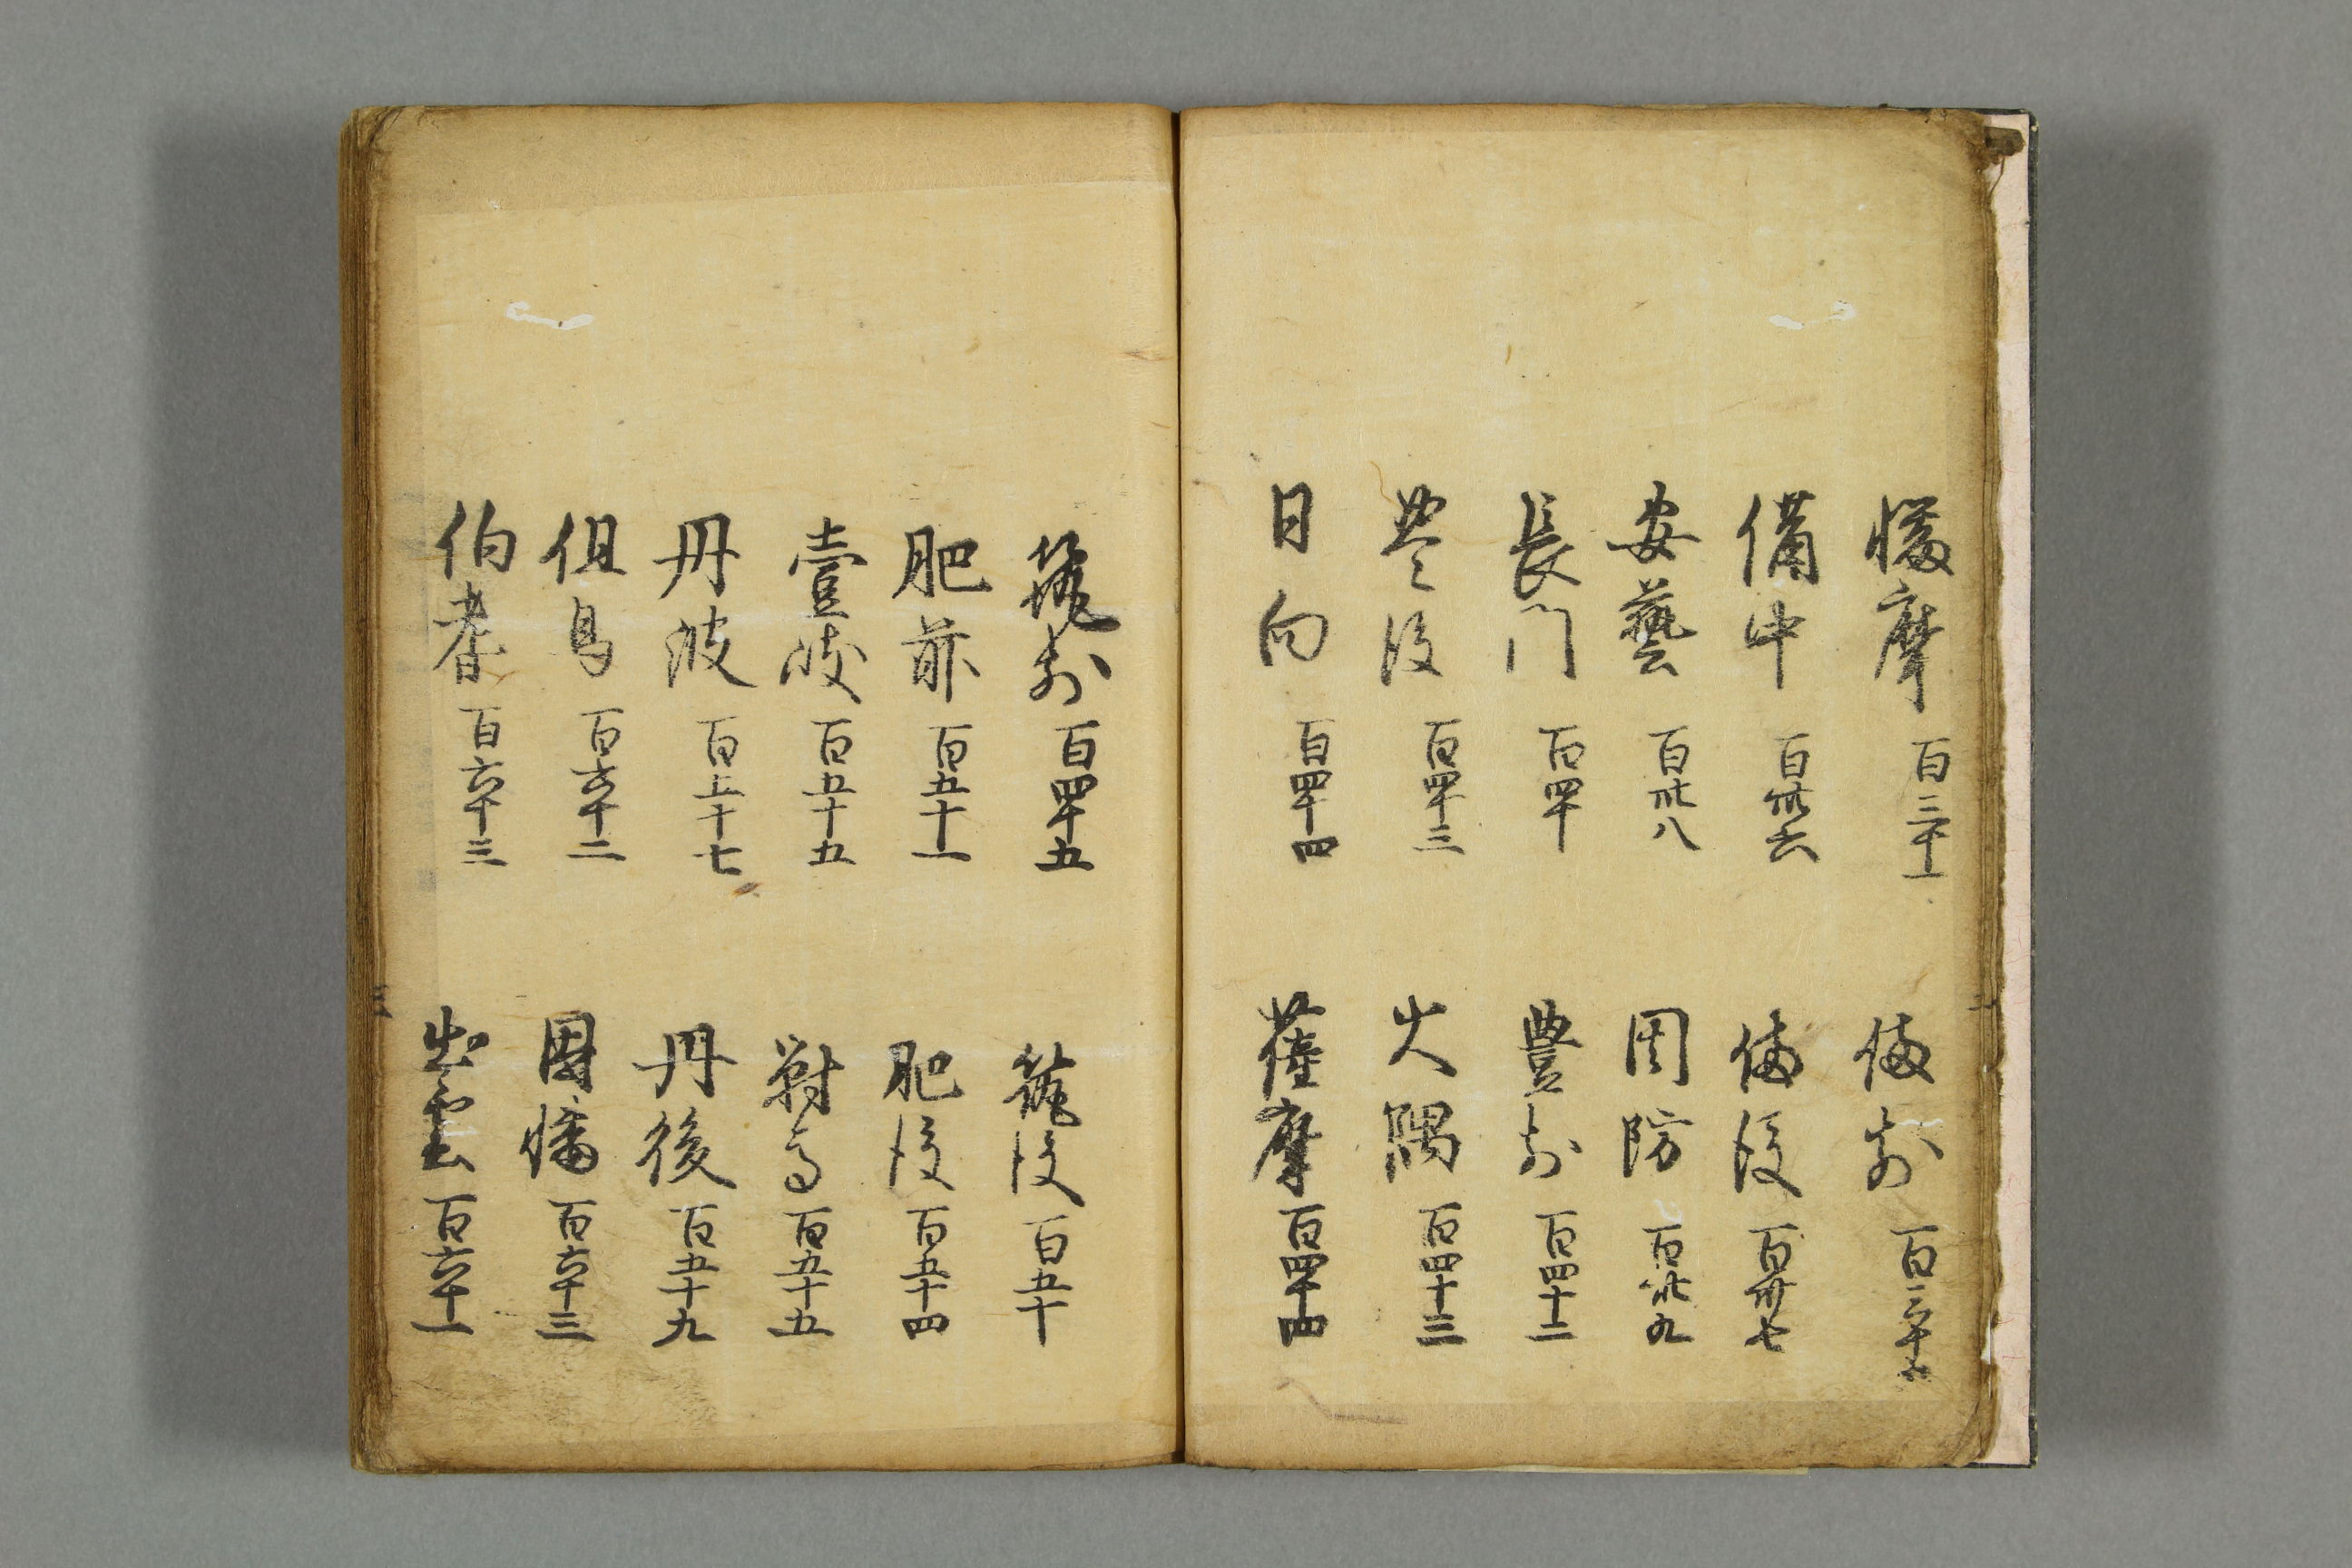 幡摩 百三十一 備前 百三十
備中 百卅六 備後 百卅七
安藝 百卅八 周防 百卅九
長門 百四十 豊前 百四十二
豊後 百四十三 大隅 百四十三
日向 百四十四 薩摩 百四十四
筑前 百四十五 筑後 百五十
肥前 百五十一 肥後 百五十四
壹岐 百五十五 對馬 百五十五
丹波 百五十七 丹後 百五十九
但馬 百六十二 因幡 百六十三
伯耆 百六十三 出雲 百六十一